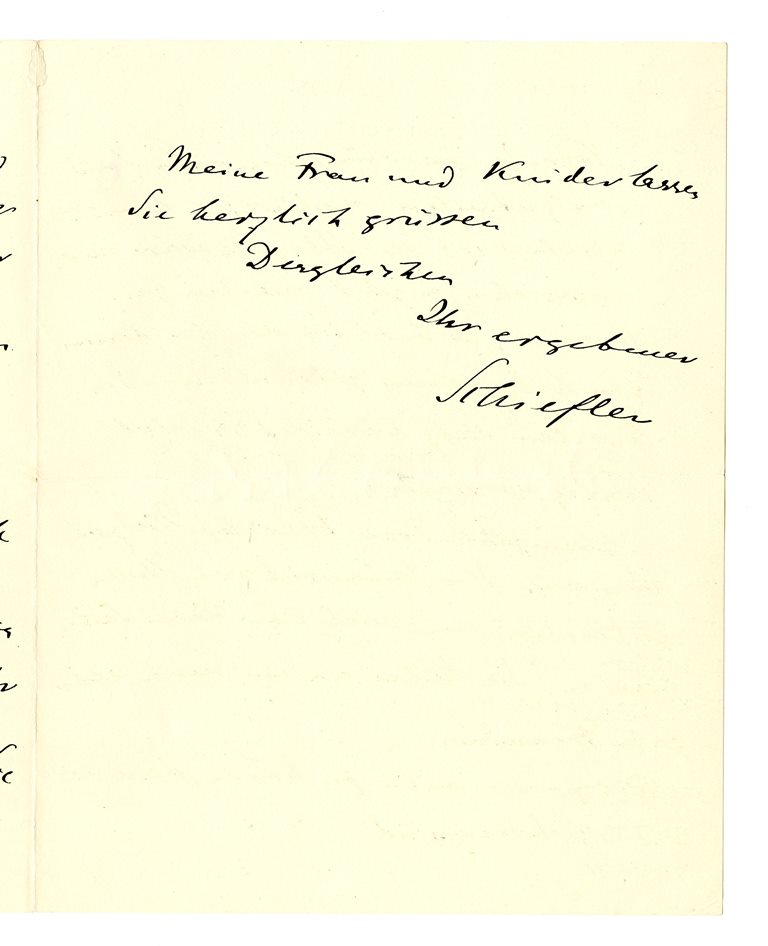 Meine Frau und Kinder lassen
Sie herzlich grüssen
Dergleichen
Ihr ergebener
Schiefler